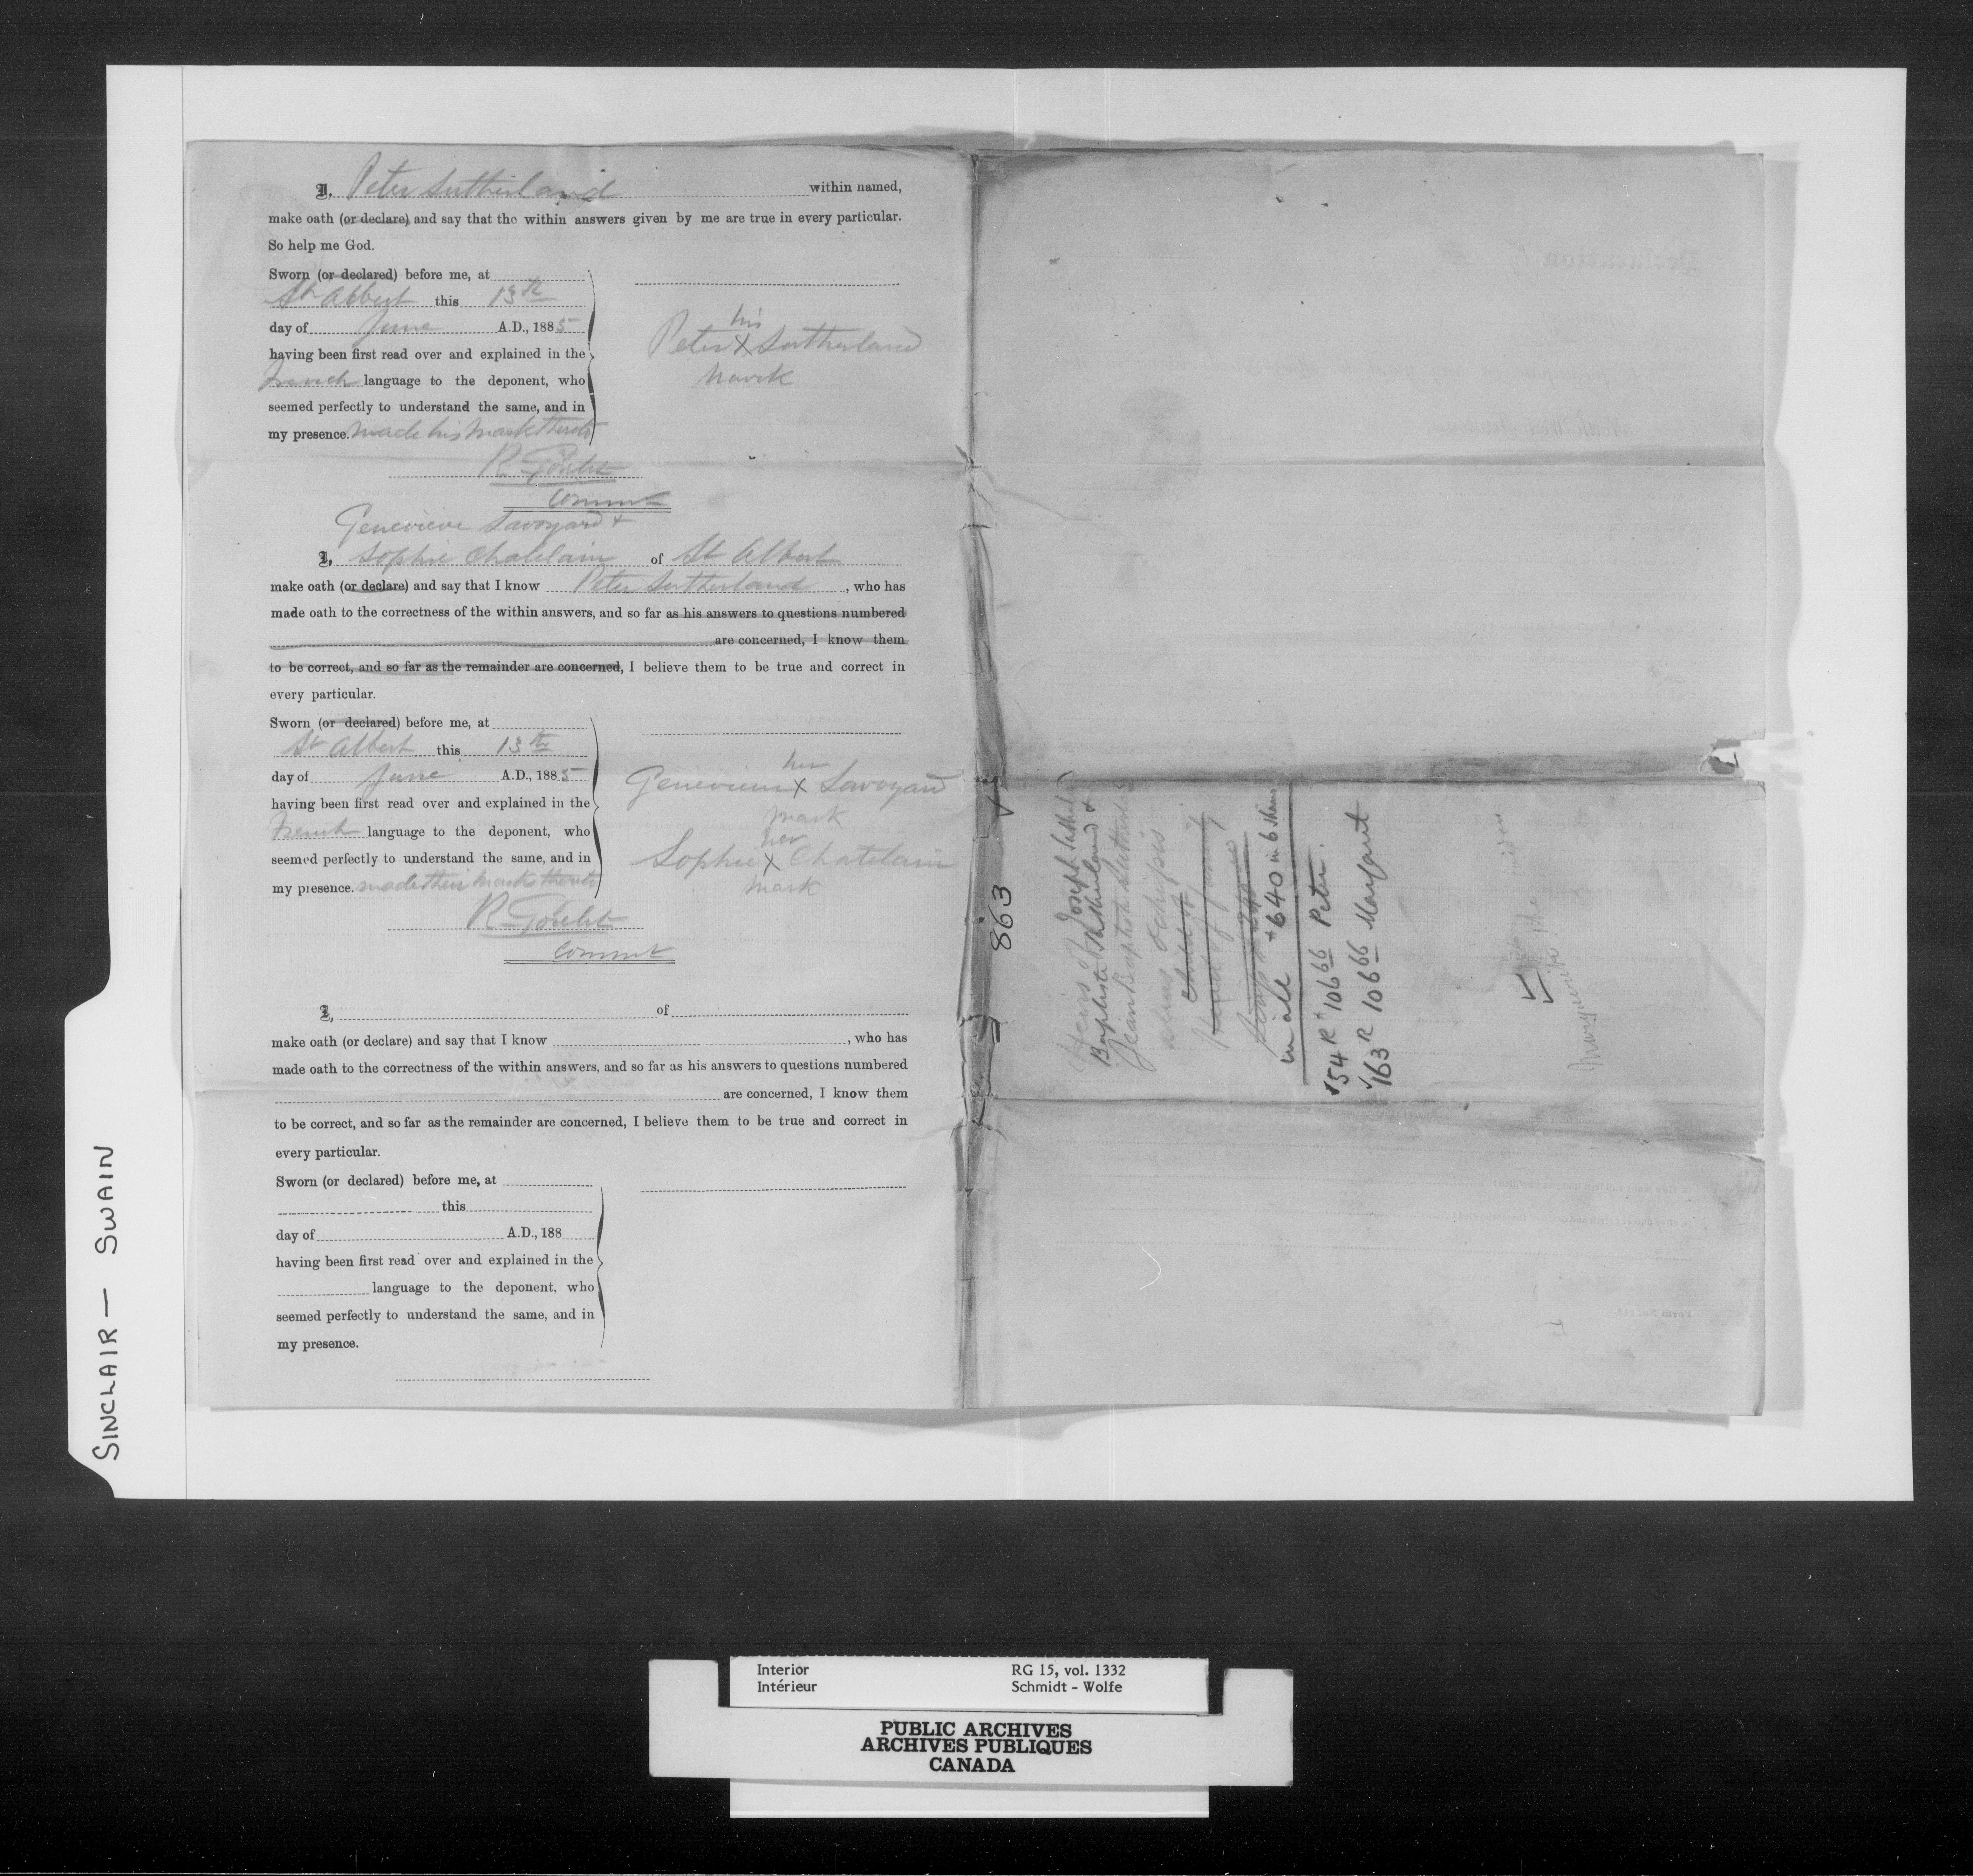 I, Peter Sutherland within named,
make oath (or declare) and say that the within answers given by me are true in every particular.
So help me God.
Sworn (or declared) before me, at
St Albert this 13th
day of June A.D., 1885
having been first read over and explained in the
French language to the deponent, who
seemed perfectly to understand the same, and in
my presence. made his mark thereto
his
Peter X Sutherland
mark
R Goulet
Commr
Genevieve Savoyard &
I, Sophie Chatelain of St Albert
make oath (or declare) and say that I know Peter Sutherland, who has
made oath to the correctness of the within answers, and so far as his answers to questions numbered
are concerned, I know them
to be correct, and so far as the remainder are concerned, I believe them to be true and correct in
every particular.
Sworn (or declared) before me, at
St Albert this 13th
day of June A.D., 1885
having been first read over and explained in the
French language to the deponent, who
seemed perfectly to understand the same, and in
my presence. made their marks thereto
her
Genevieve X Savoyard
mark
her
Sophie X Chatelain
mark
R Goulet
Commr
I, of
make oath (or declare) and say that I know , who has
made oath to the correctness of the within answers, and so far as his answers to questions numbered
are concerned, I know them
to be correct, and so far as the remainder are concerned, I believe them to be true and correct in
every particular.
Sworn (or declared) before me, at
this
day of A.D., 188
having been first read over and explained in the
language to the deponent, who
seemed perfectly to understand the same, and in
my presence.
863
Heirs of Joseph Sutherland
Baptiste Sutherland &
Jean Baptiste Sutherland
alias
Child of
Head of family
in all $640 in 6 shares
54 R $106 66 Peter.
163 R 106 66 Margaret
Marguerite
SINCLAIR — SWAIN
Interior RG 15, vol. 1332
Intérieur Schmidt - Wolfe
PUBLIC ARCHIVES
ARCHIVES PUBLIQUES
CANADA